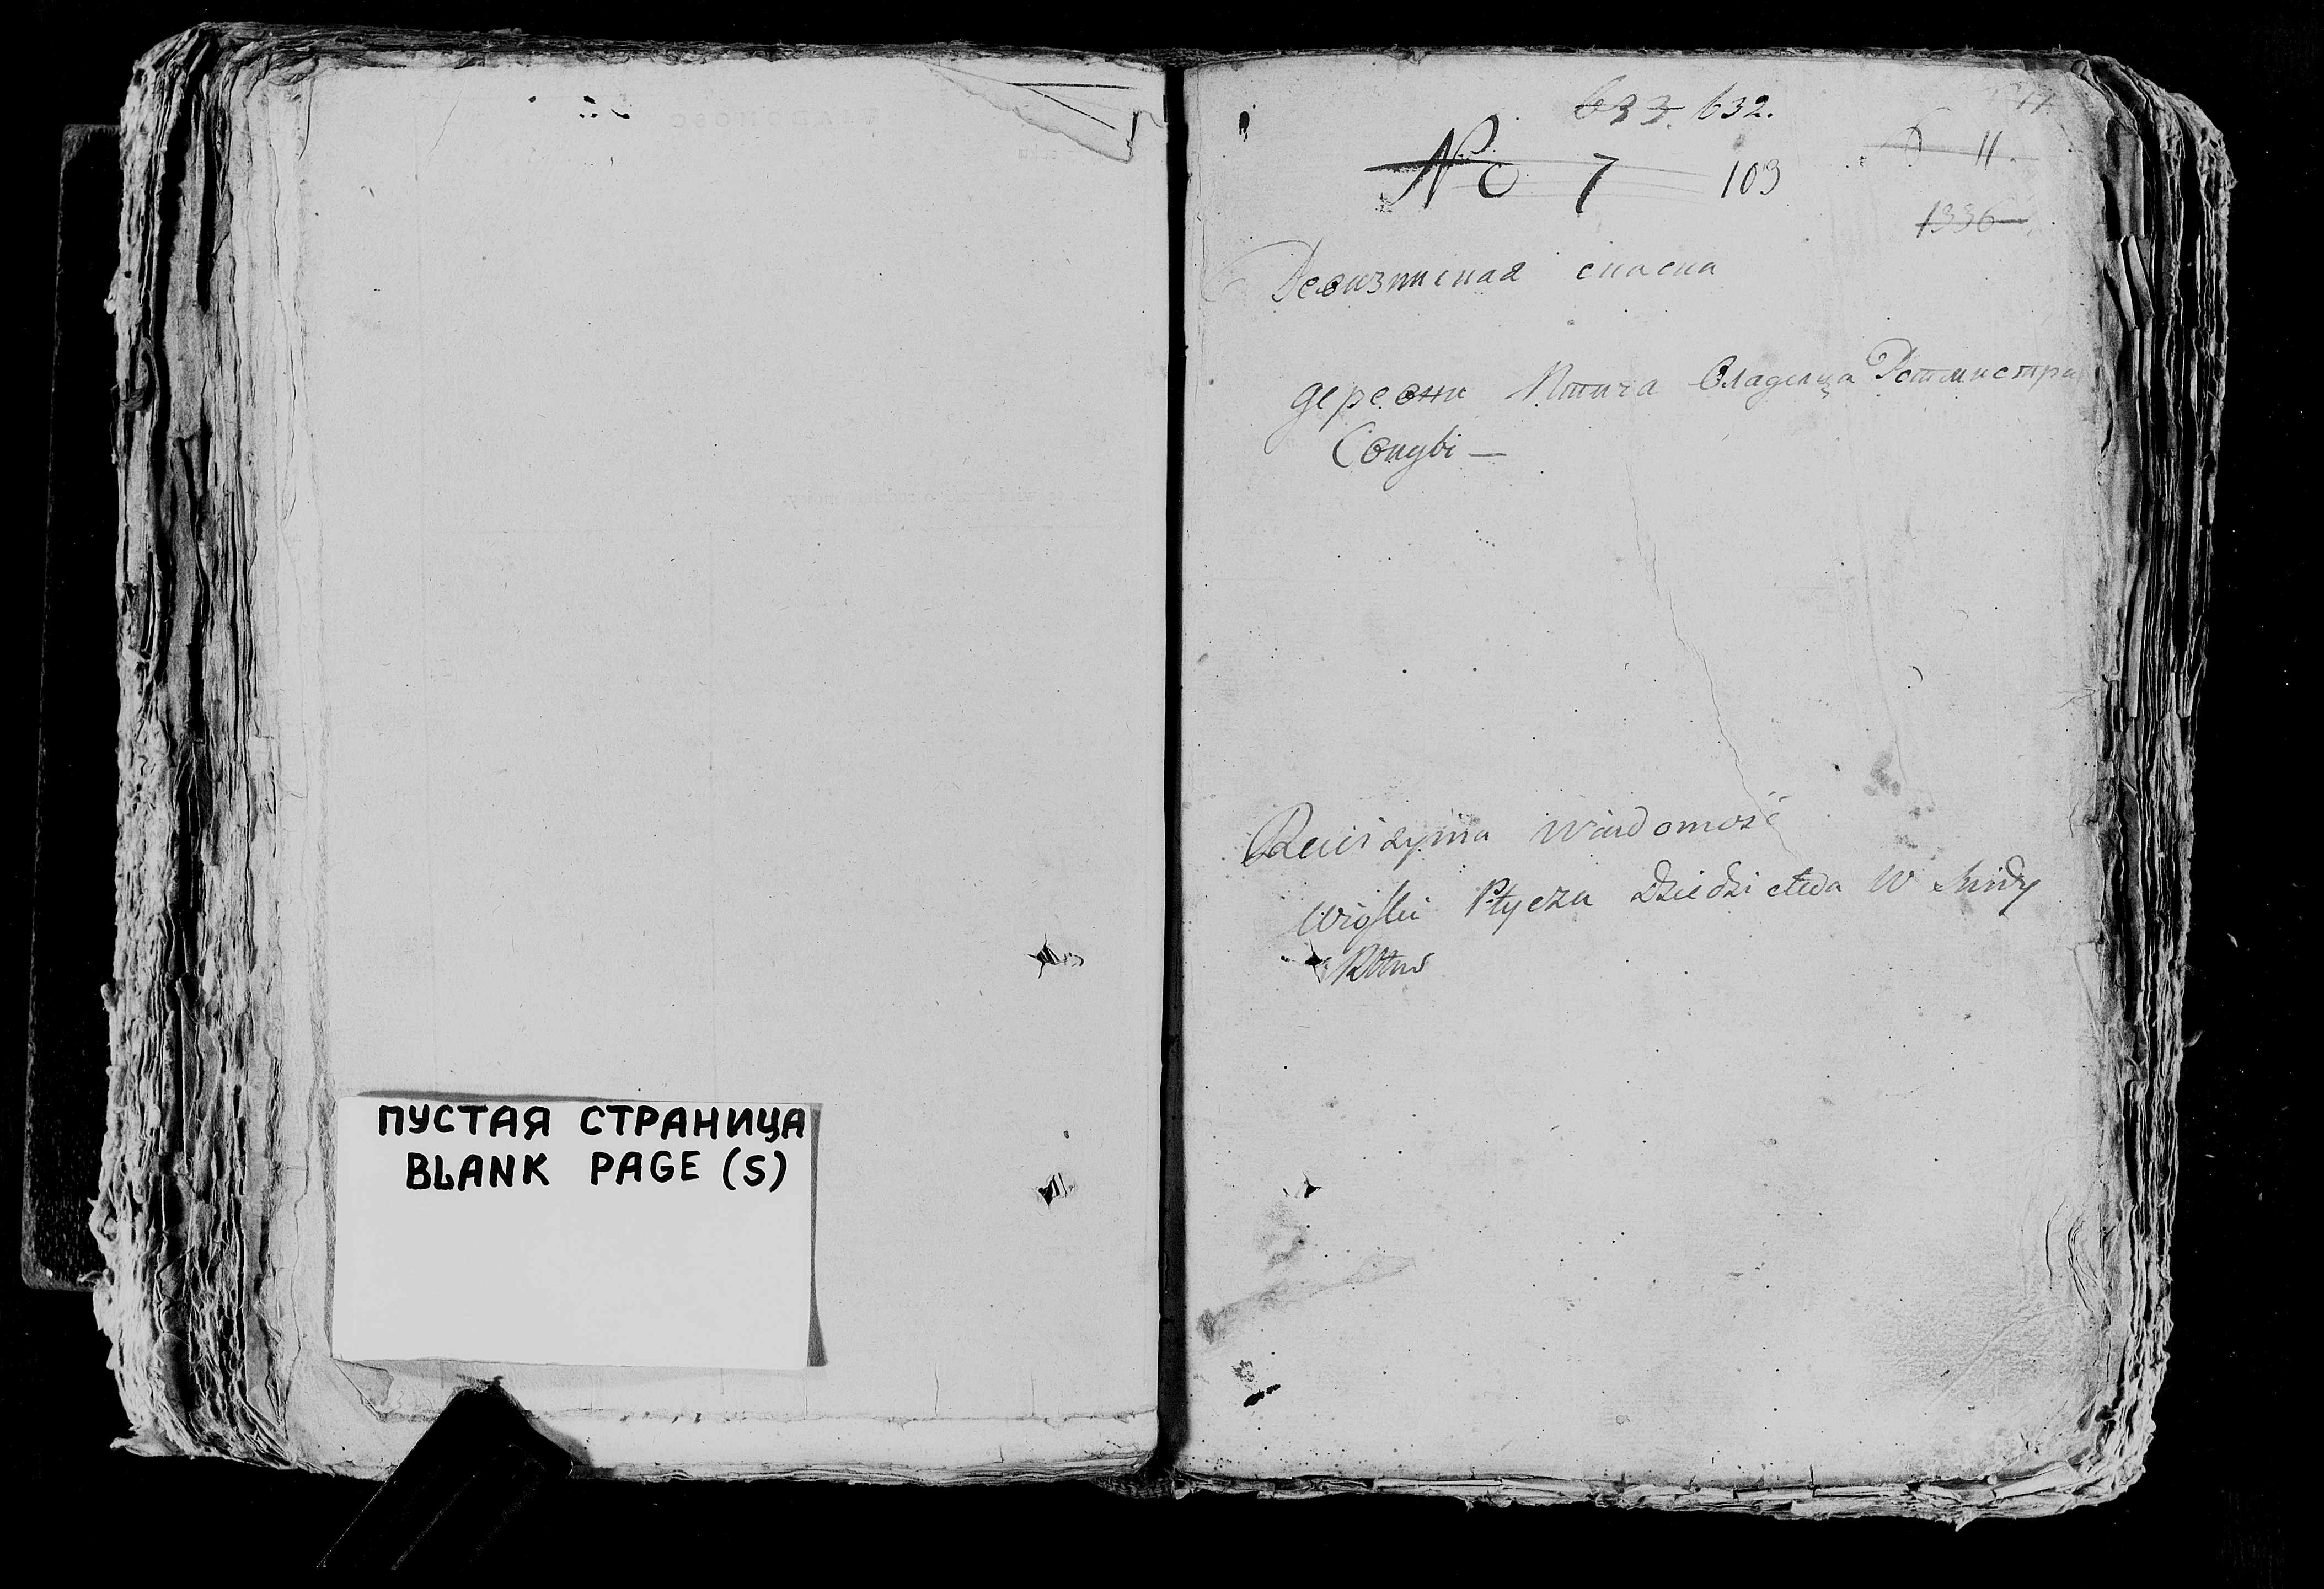 ПУСТАЯ СТРАНИЦА
BLANK PAGE (S)
633. 632.
No 7 103
11.
1336
Ревизская сказка
деревни Птича Владелца Ротмистра
Rewizyina Wiadomość
Wioski Ptycza Dziedzictwa W
Rttmo